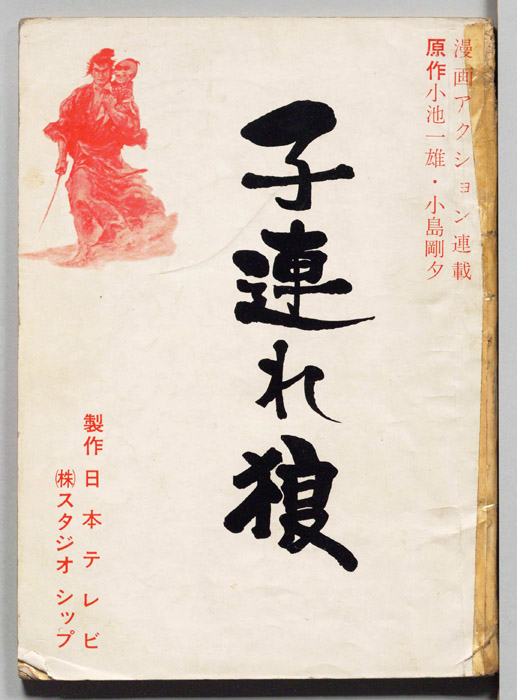 漫画アクション連載
原作小池一雄・小島剛夕
子連れ狼
製作 日本テレビ
㈱スタジオ シップ